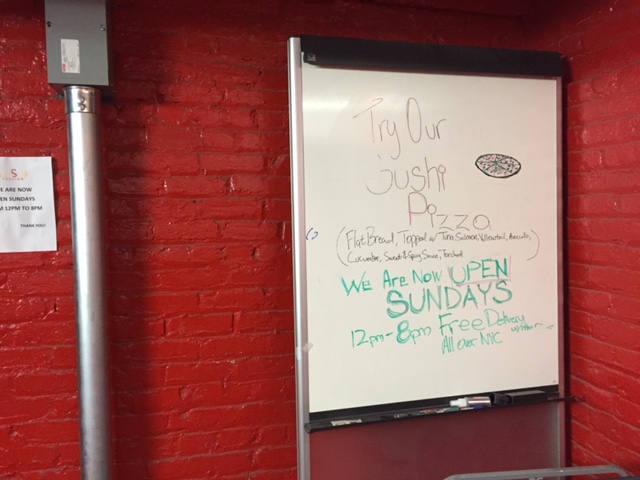 S
E ARE NOW
EN SUNDAYS
M 12PM TO 8PM
THANK YOU!
Try Our
Sushi
Pizza
(Flat Bread, Topped w/ Tuna, Salmon, Yellowtail, Avocado,
Cucumber, Sweet & Spicy Sauce, Torched)
WE ARE NOW OPEN
SUNDAYS
12pm-8pm Free Delivery
All over NYC